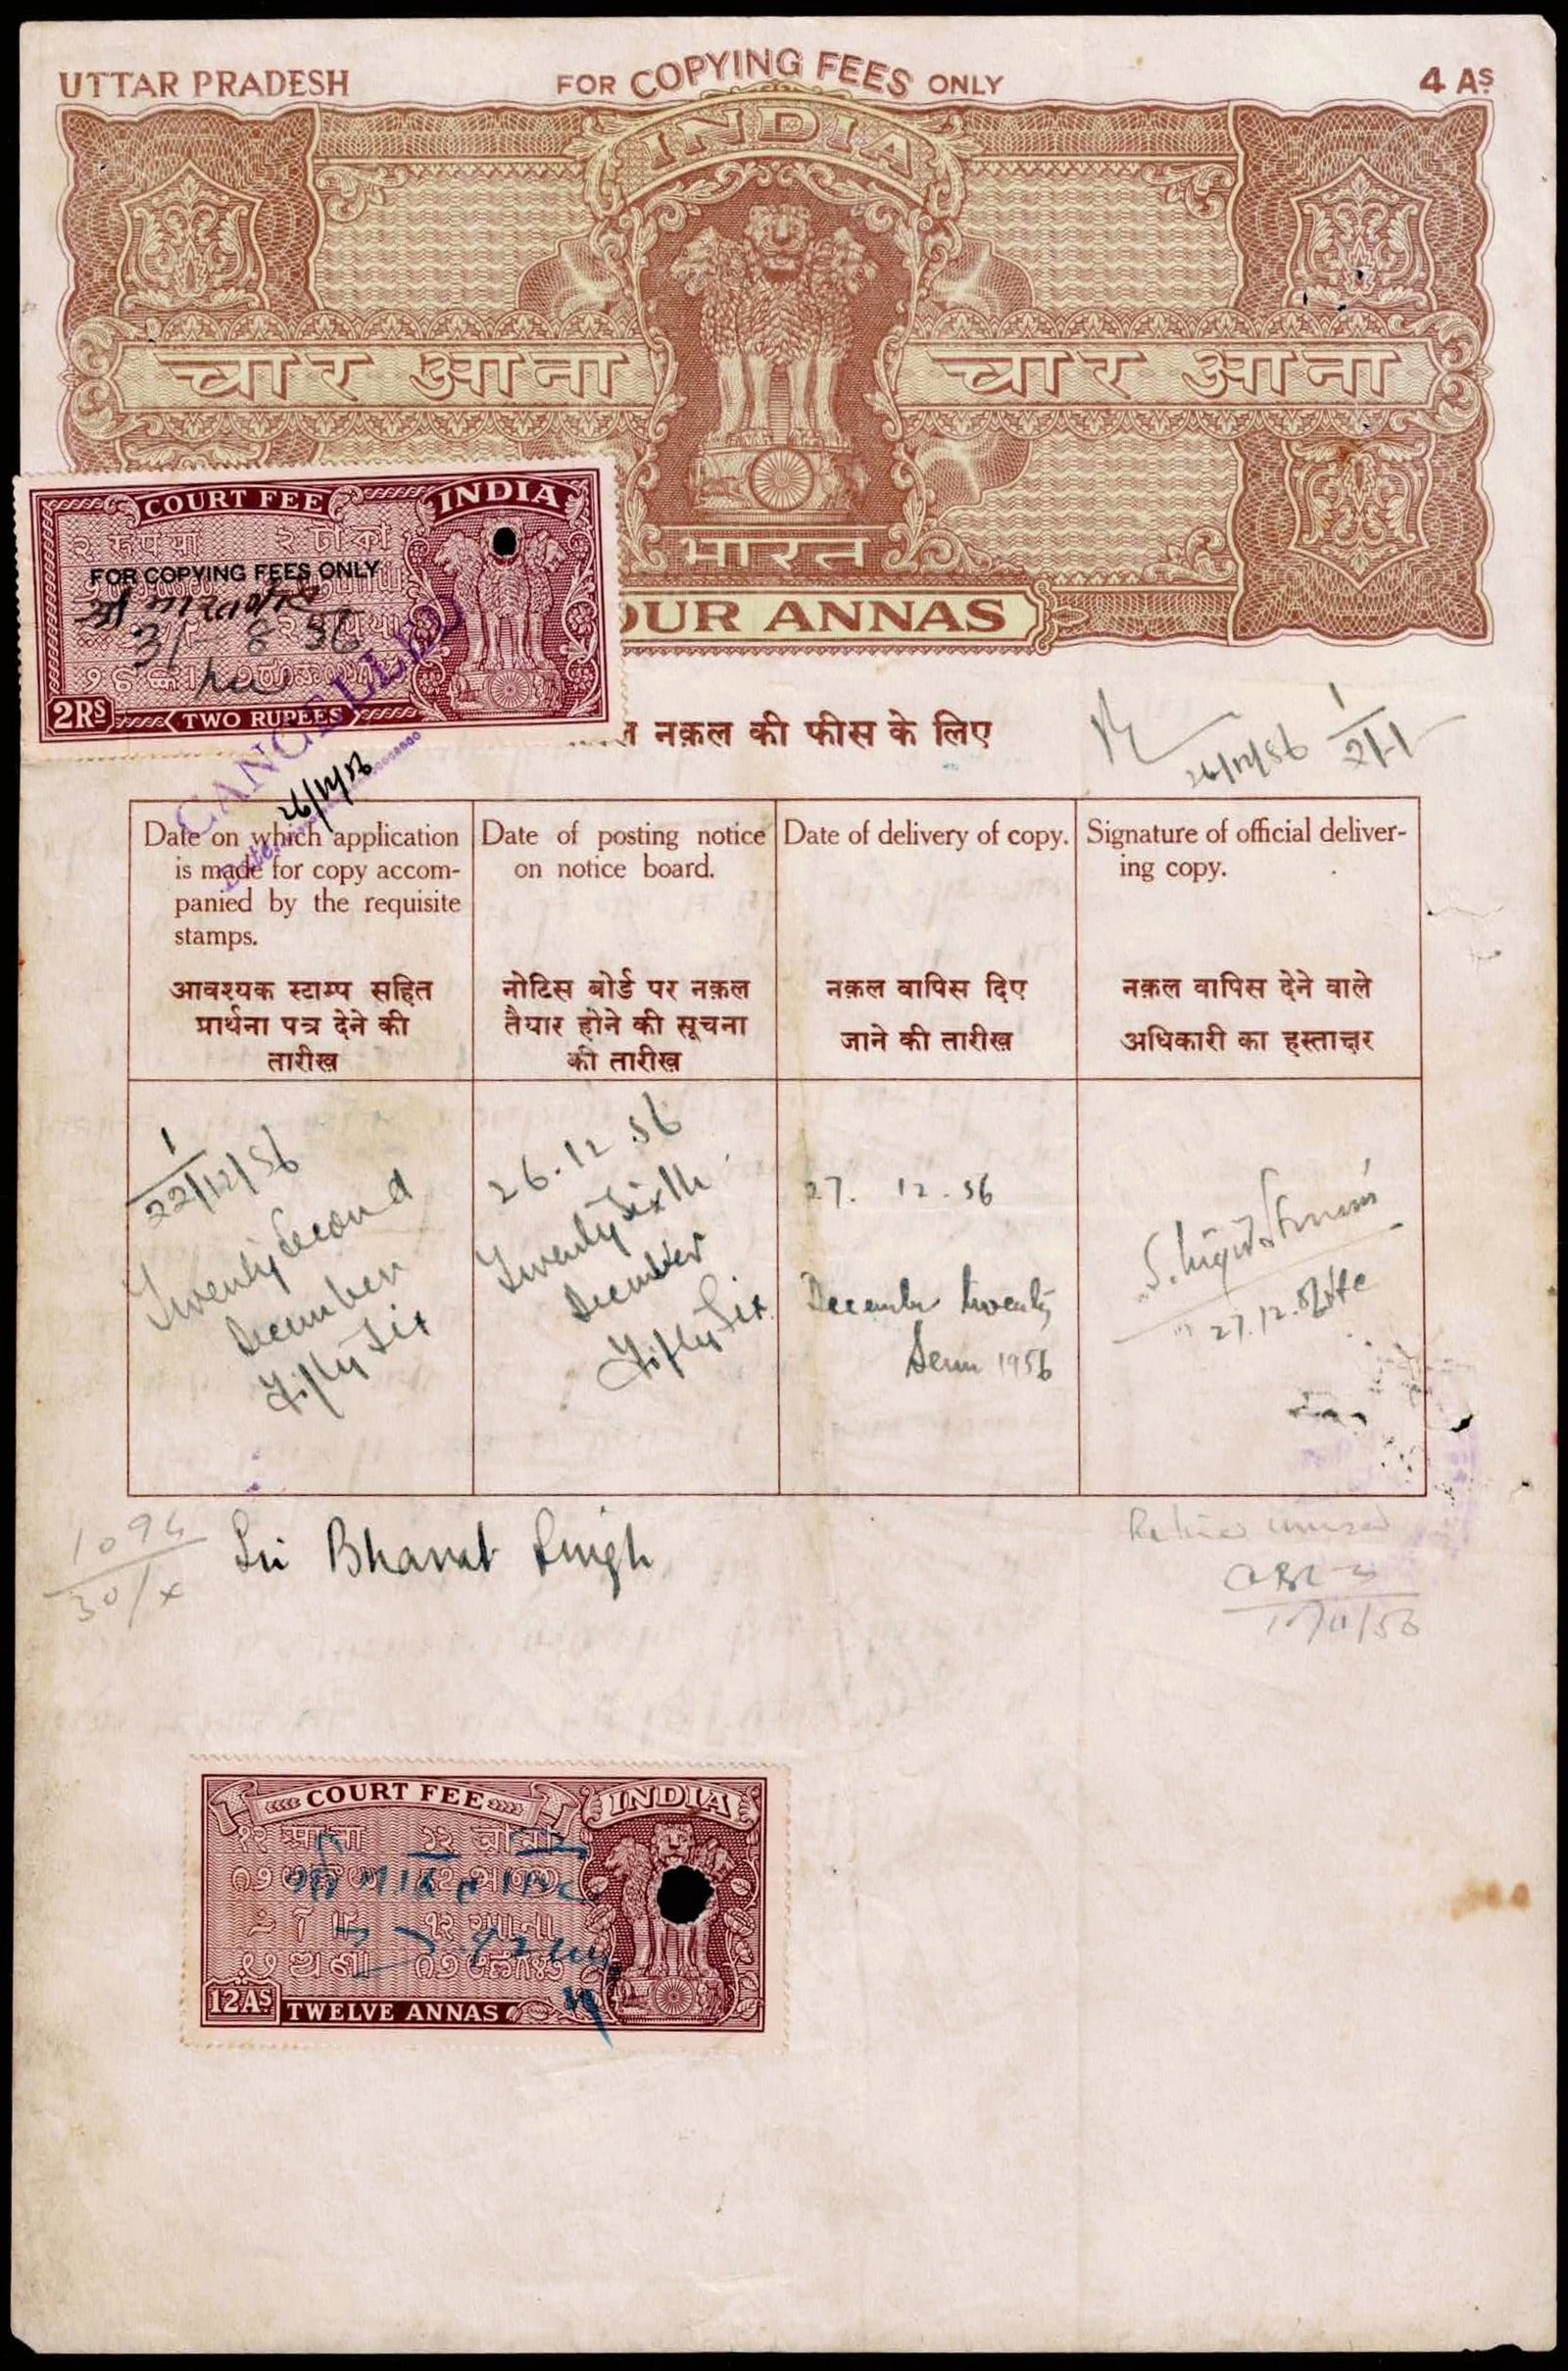 UTTAR PRADESH
FOR COPYING FEES ONLY
4 AS
INDIA
चार आना
चार आना
भारत
OUR ANNAS
COURT FEE
INDIA
२ रुपया
FOR COPYING FEES ONLY
2RS
TWO RUPEES
CANCELLED
26/12/56
नक़ल की फीस के लिए
26/12/56
Date on which application
is made for copy accom-
panied by the requisite
stamps.
आवश्यक स्टाम्प सहित
प्रार्थना पत्र देने की
तारीख़
Date of posting notice
on notice board.
नोटिस बोर्ड पर नक़ल
तैयार होने की सूचना
की तारीख़
Date of delivery of copy.
नक़ल वापिस दिए
जाने की तारीख़
Signature of official deliver-
ing copy.
नक़ल वापिस देने वाले
अधिकारी का हस्ताक्षर
1
22/12/56
Twenty Second
December
Fifty Six
26.12.56
Twenty Sixth
December
Fifty Six
27. 12. 56
December twenty
Seven 1956
27.12.56
1094
30/x
Sri Bharat Singh
COURT FEE
INDIA
१२ आना
१२ આના
12AS
TWELVE ANNAS